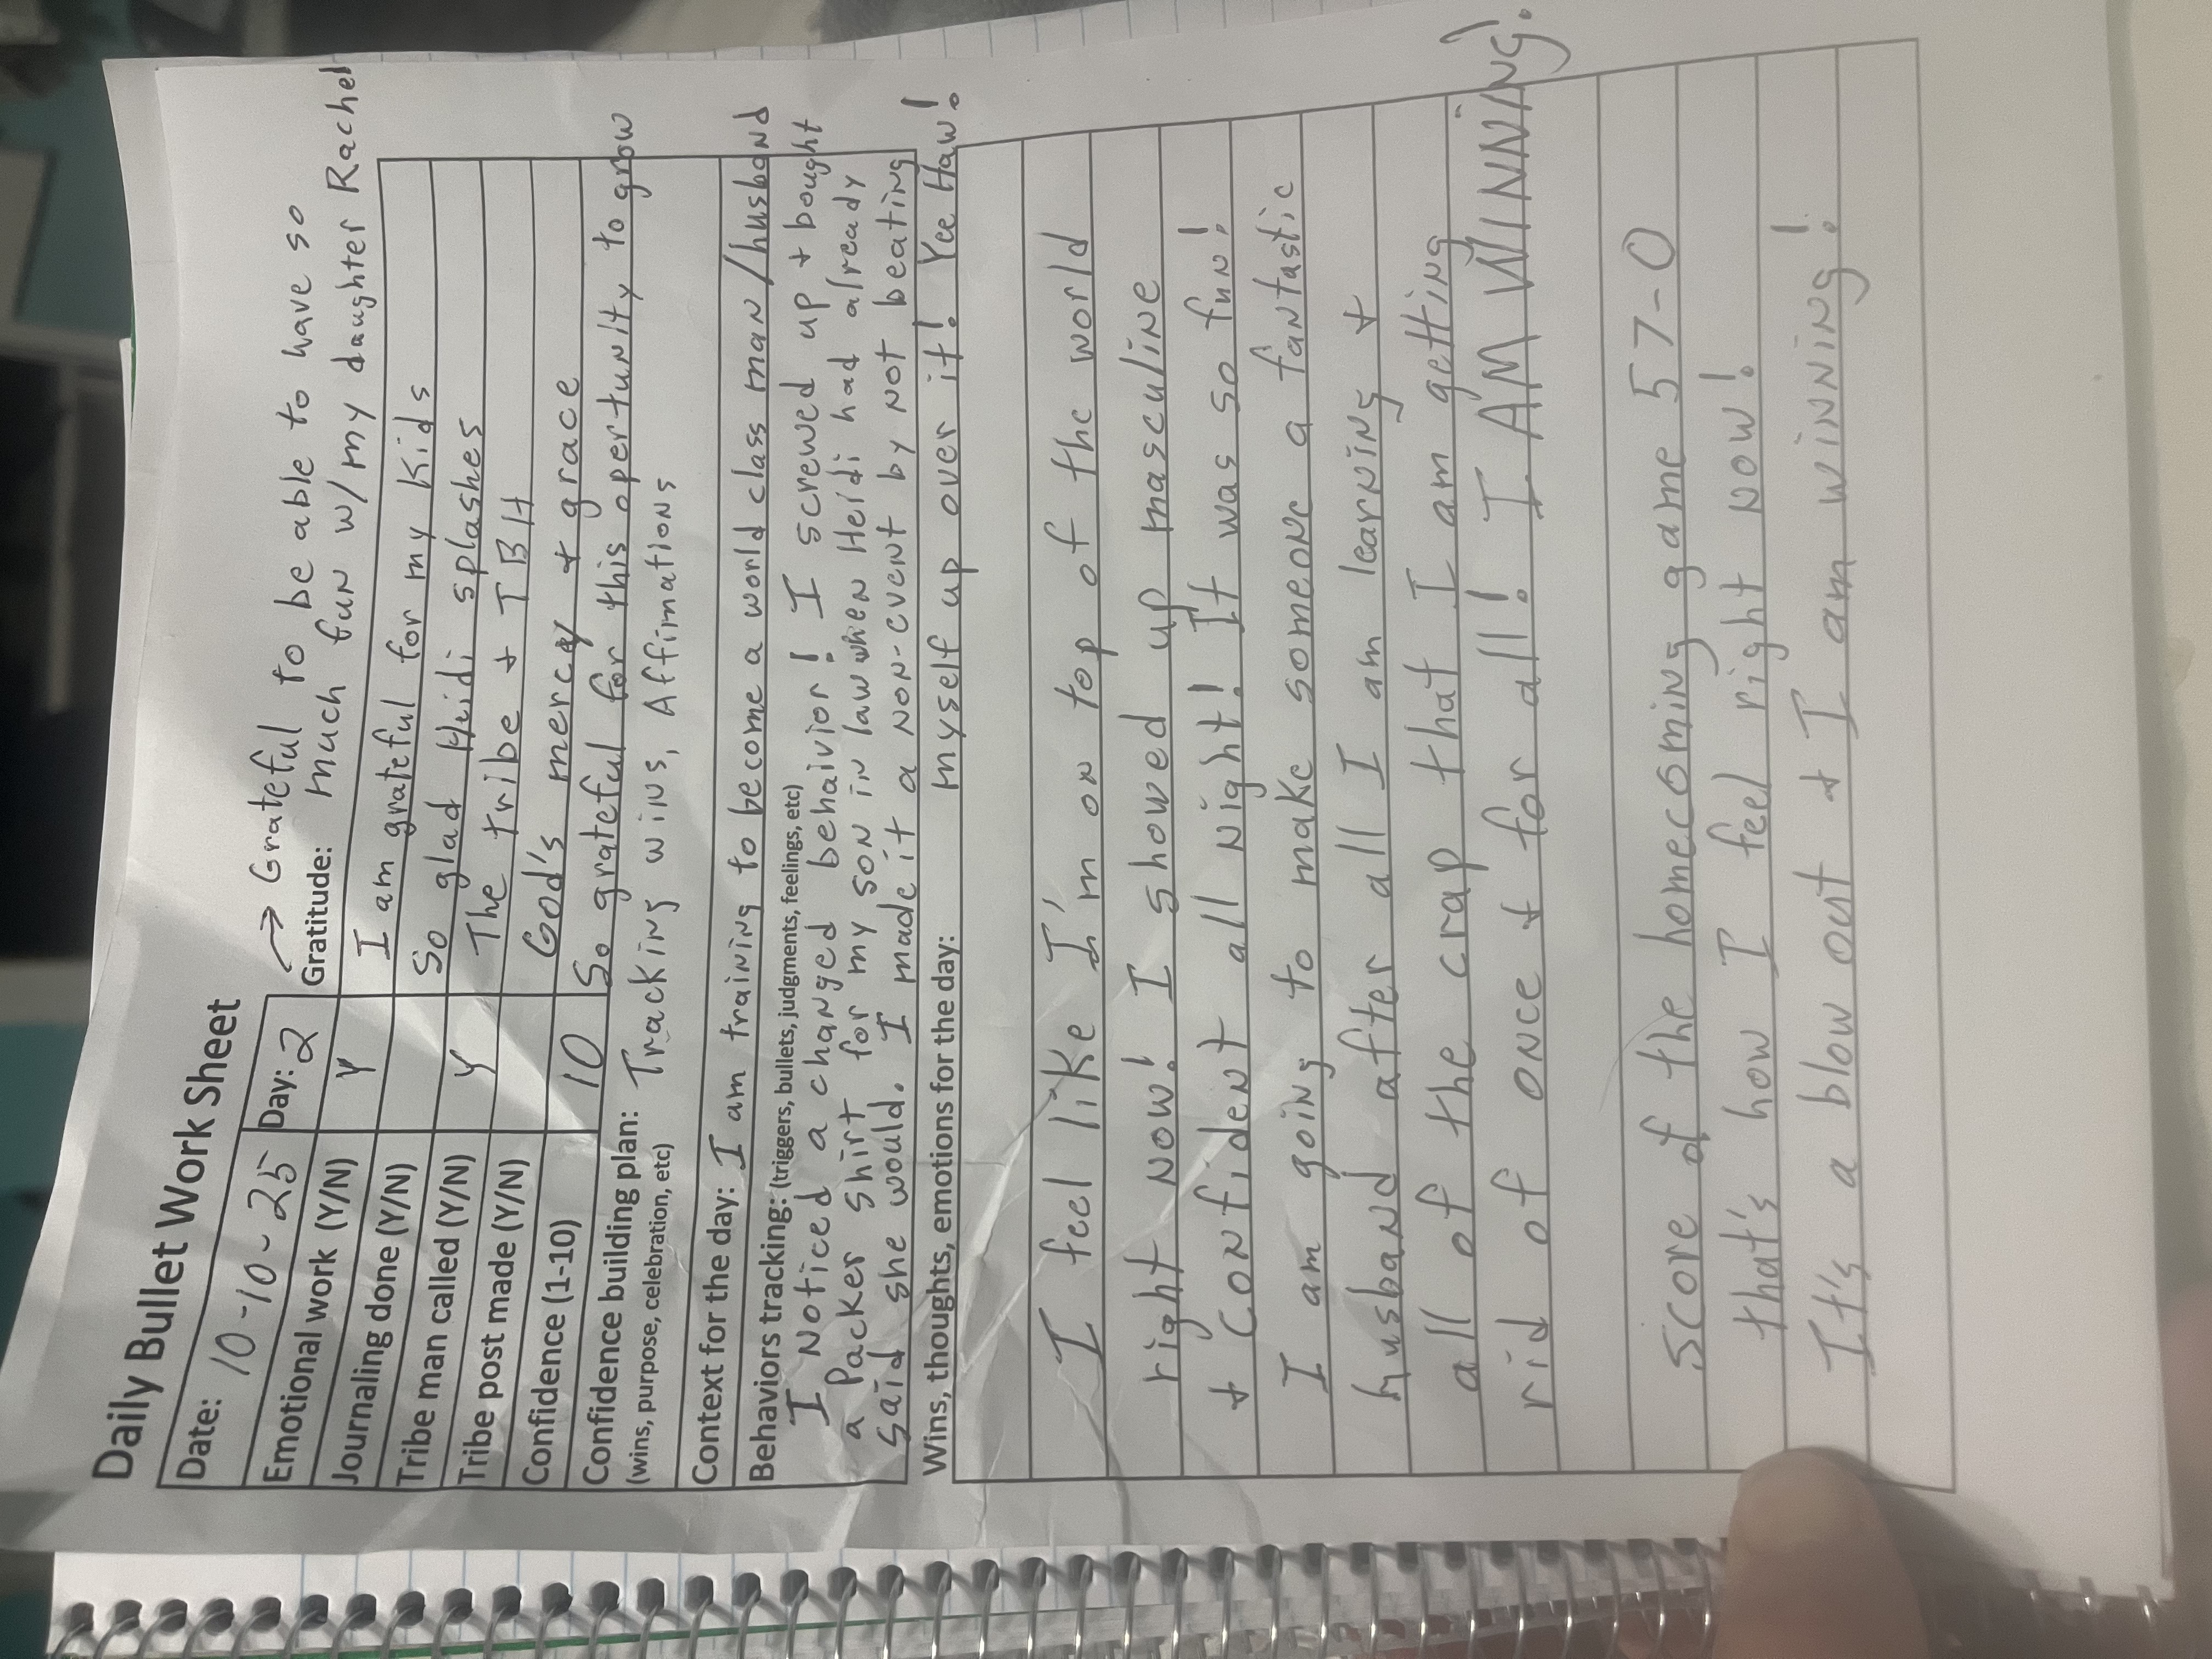 Daily Bullet Work Sheet
Date: 10-10-25 Day: 2
→ Grateful to be able to have so
Gratitude: much fun w/ my daughter Rachel
Emotional work (Y/N) Y I am grateful for my kids
Journaling done (Y/N) So glad Heidi splashes
Tribe man called (Y/N) Y The tribe + TBH
Tribe post made (Y/N) God's mercy + grace
Confidence (1-10) 10 So grateful for this opertunity to grow
Confidence building plan: Tracking wins, Affirmations
(wins, purpose, celebration, etc)
Context for the day: I am training to become a world class man/husband
Behaviors tracking: (triggers, bullets, judgments, feelings, etc)
I Noticed a changed behaivior! I screwed up + bought
a Packer shirt for my son in law when Heidi had already
said she would. I made it a non-event by not beating
Wins, thoughts, emotions for the day: myself up over it! Yee Haw!
I feel like I'm on top of the world
right now! I showed up masculine
+ confident all night! It was so fun!
I am going to make someone a fantastic
husband after all I am learning +
all of the crap that I am getting
rid of once + for all! I AM WINNING!
Score of the homecoming game 57-0
that's how I feel right now!
It's a blow out + I am winning!